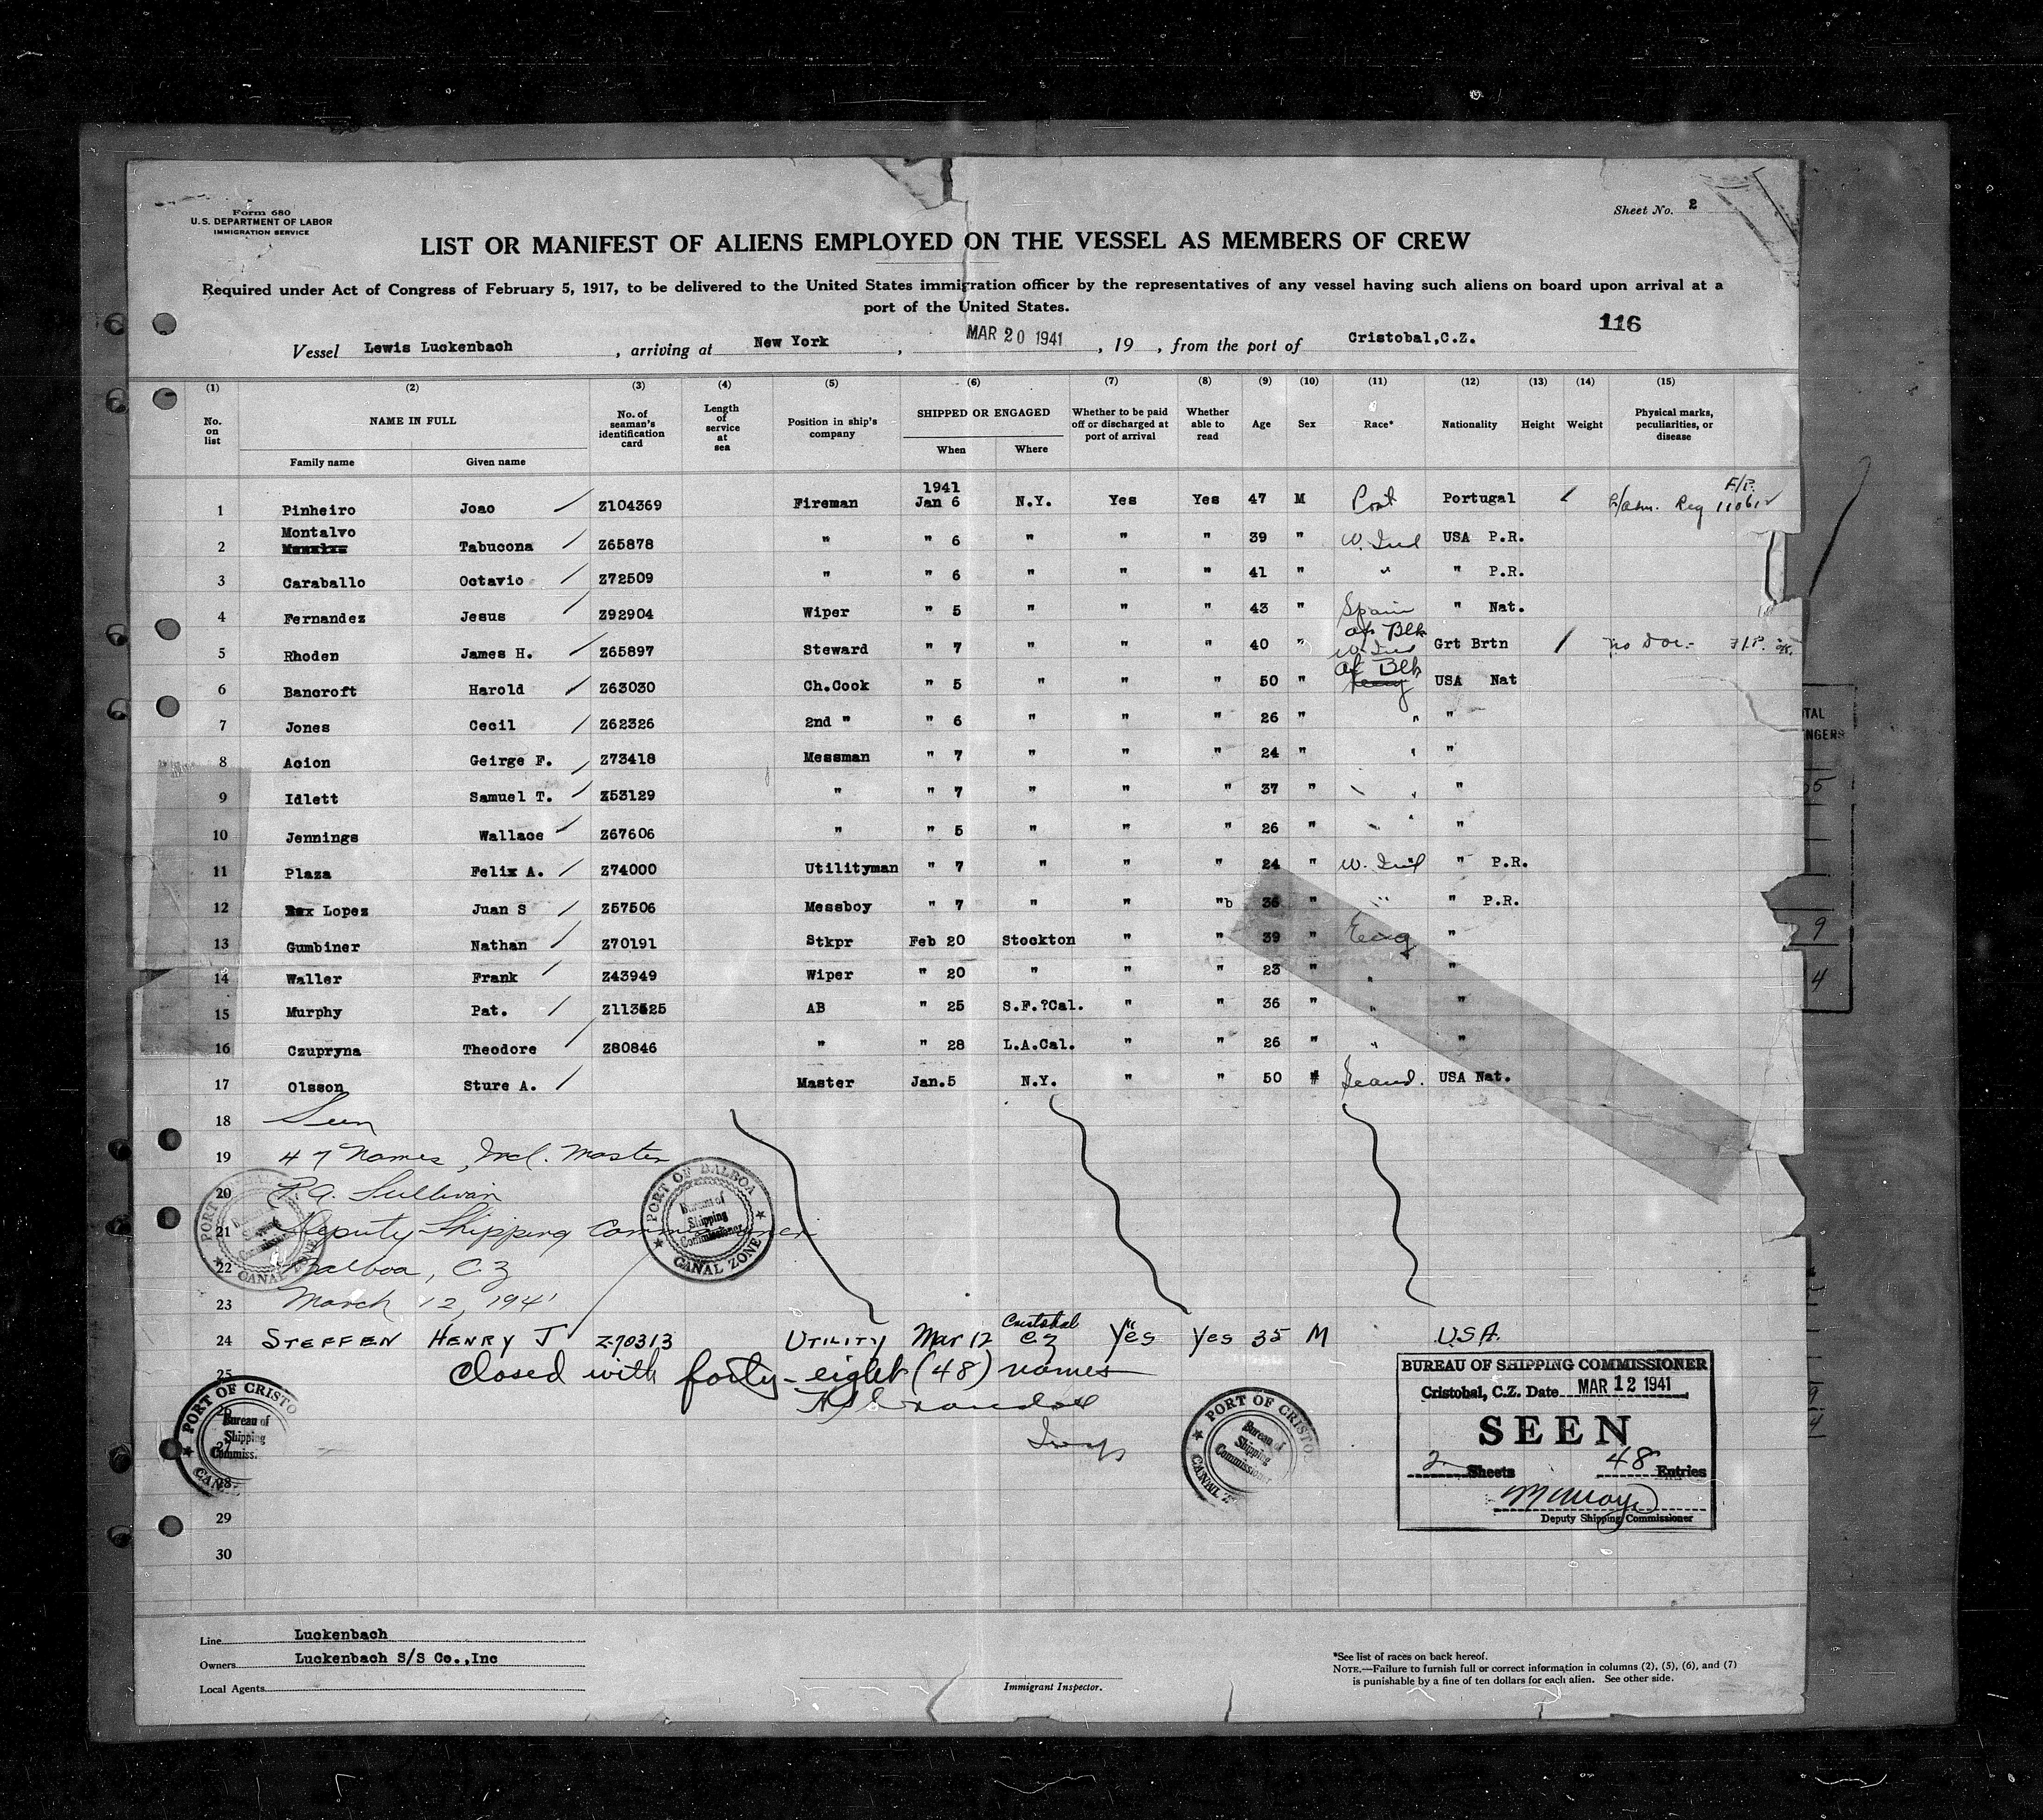 Form 680
U.S. DEPARTMENT OF LABOR
IMMIGRATION SERVICE
Sheet No. 2
LIST OR MANIFEST OF ALIENS EMPLOYED ON THE VESSEL AS MEMBERS OF CREW
Required under Act of Congress of February 5, 1917, to be delivered to the United States immigration officer by the representatives of any vessel having such aliens on board upon arrival at a
port of the United States.
116
Vessel Lewis Luckenbach, arriving at New York, MAR 20 1941, 19 , from the port of Cristobal,C.Z.
(1) (2) (3) (4) (5) (6) (7) (8) (9) (10) (11) (12) (13) (14) (15)
No. on list NAME IN FULL Family name Given name No. of seaman's identification card Length of service at sea Position in ship's company SHIPPED OR ENGAGED When Where Whether to be paid off or discharged at port of arrival Whether able to read Age Sex Race* Nationality Height Weight Physical marks, peculiarities, or disease
1941 F/P.
1 Pinheiro Joao Z104369 Fireman Jan 6 N.Y. Yes Yes 47 M Port Portugal Reg 11061
Montalvo
2 Tabucona Z65878 " " 6 " " " 39 " W. Ind USA P.R.
3 Caraballo Octavio Z72509 " " 6 " " " 41 " " " P.R.
4 Fernandez Jesus Z92904 Wiper " 5 " " " 43 " Spain " Nat.
af Blk
5 Rhoden James H. Z65897 Steward " 7 " " " 40 " W. Ind Grt Brtn no Doc. F/P. ok.
6 Bancroft Harold Z63030 Ch.Cook " 5 " " " 50 " af Blk USA Nat
7 Jones Cecil Z62326 2nd " " 6 " " " 26 " " "
8 Acion Geirge F. Z73418 Messman " 7 " " " 24 " " "
9 Idlett Samuel T. Z53129 " " 7 " " " 37 " " " "
10 Jennings Wallace Z67606 " " 5 " " " 26 " " " "
11 Plaza Felix A. Z74000 Utilityman " 7 " " " 24 " W. Ind " P.R.
12 Lopez Juan S Z57506 Messboy " 7 " " "b 36 " " " P.R.
13 Gumbiner Nathan Z70191 Stkpr Feb 20 Stockton " " 39 " Eng "
14 Waller Frank Z43949 Wiper " 20 " " " 23 " " "
15 Murphy Pat. Z113525 AB " 25 S.F.?Cal. " " 36 " " "
16 Czupryna Theodore Z80846 " " 28 L.A.Cal. " " 26 " " "
17 Olsson Sture A. Master Jan.5 N.Y. " " 50 Scand. USA Nat.
18 Seen
19 47 names, Incl. Master
20 P.A. Sullivan
21 Deputy Shipping Commissioner
22 Balboa, C Z
23 March 12, 1941
PORT OF BALBOA
Bureau of
Shipping
Commissioner
CANAL ZONE
PORT
CANAL ZONE
24 STEFFEN HENRY J Z-70313 UTILITY Mar 12 Cristobal CZ Yes Yes 35 M U.S.A.
25 Closed with forty-eight (48) names
PORT OF CRISTO
Bureau of
Shipping
Commiss.
PORT OF CRISTO
Bureau of
Shipping
Commissioner
BUREAU OF SHIPPING COMMISSIONER
Cristobal, C.Z. Date MAR 12 1941
SEEN
2 Sheets 48 Entries
Deputy Shipping Commissioner
28
29
30
Line Luckenbach
Owners Luckenbach S/S Co.,Inc
Local Agents
Immigrant Inspector.
*See list of races on back hereof.
NOTE.—Failure to furnish full or correct information in columns (2), (5), (6), and (7)
is punishable by a fine of ten dollars for each alien. See other side.